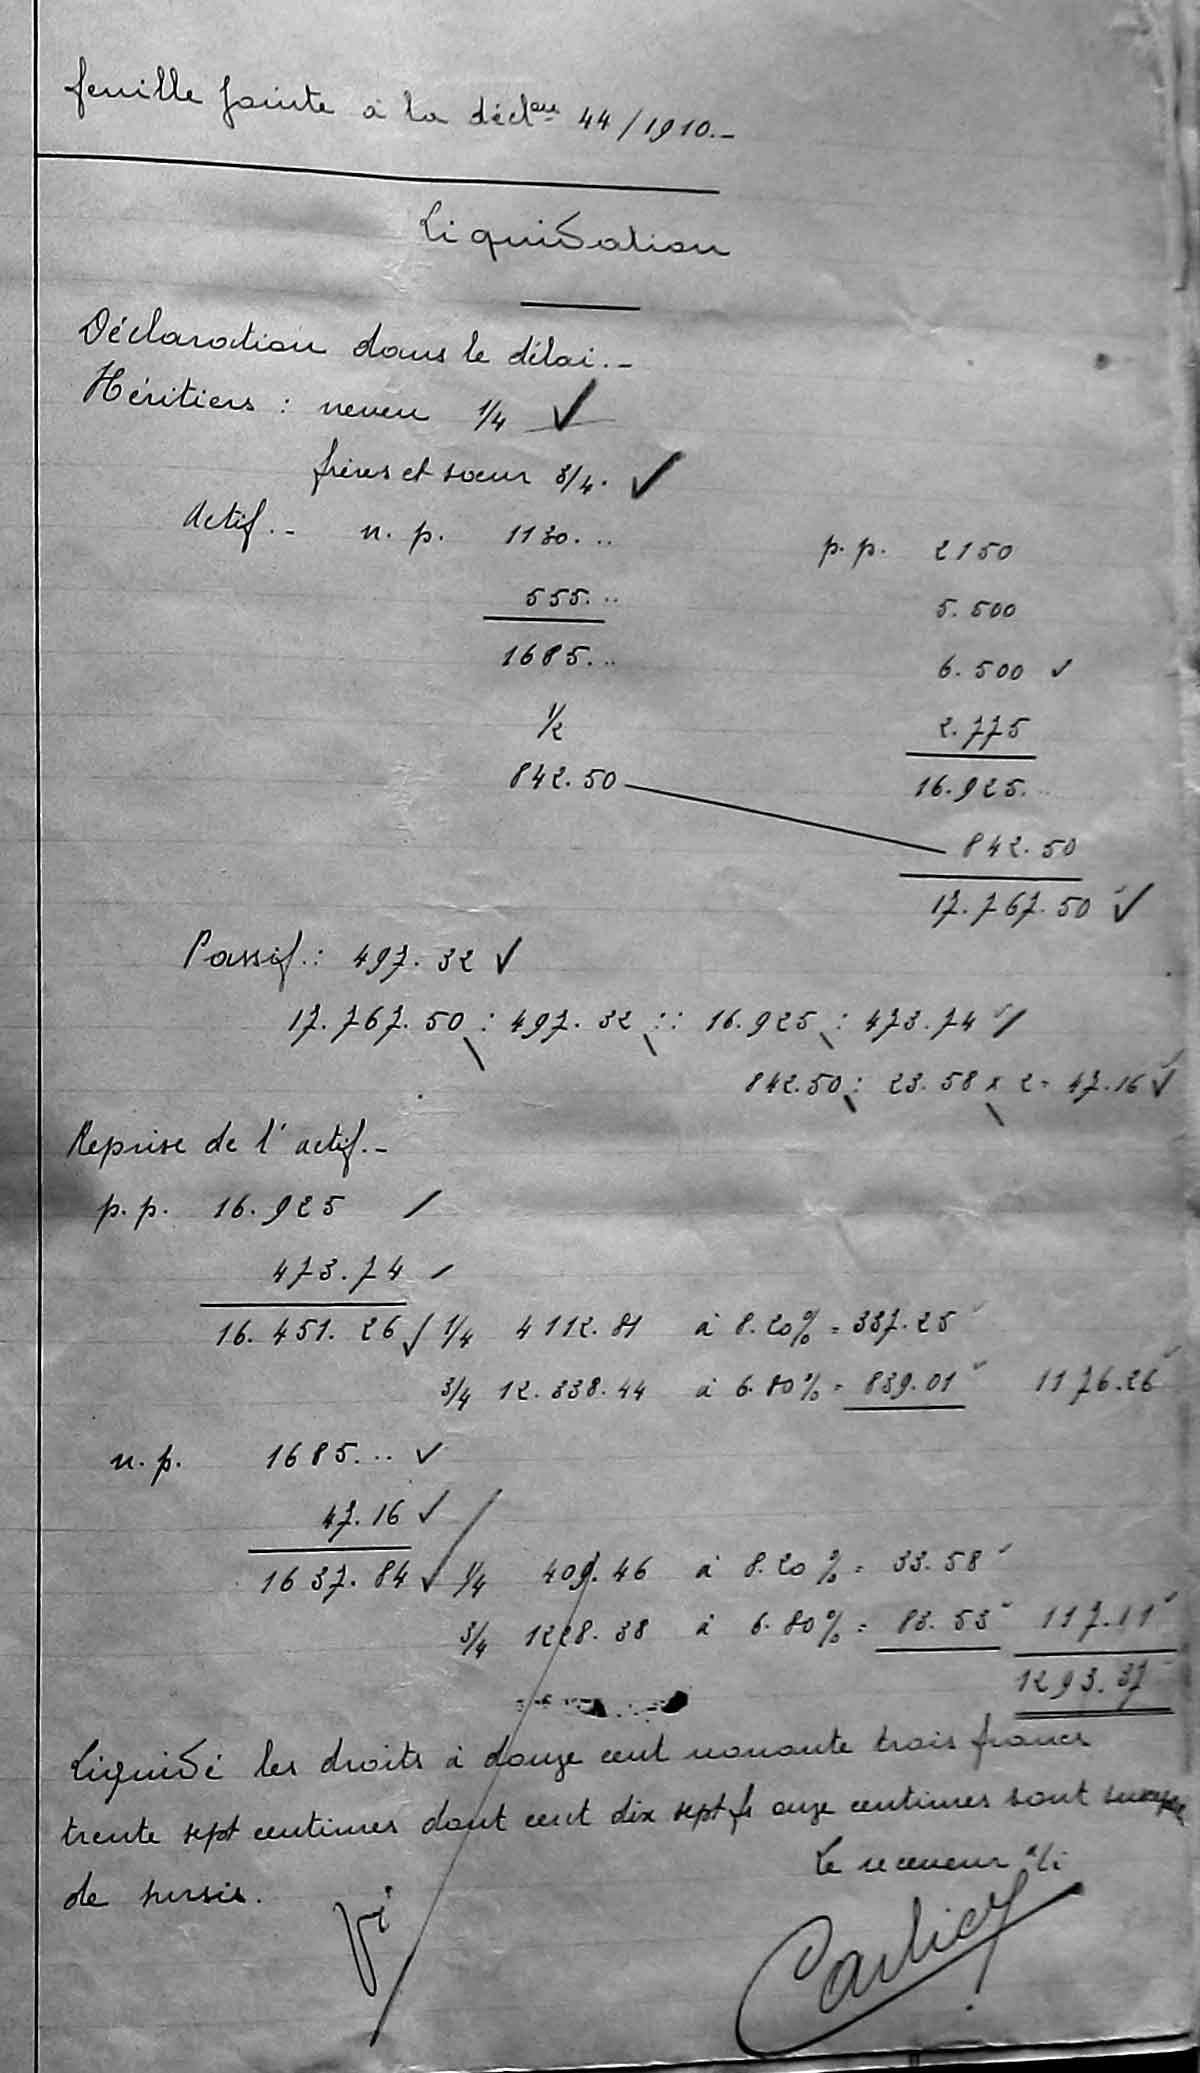 feuille jointe à la décl^on 44/1910.-
Liquidation
Déclaration dans le délai.-
Héritiers : neveu 1/4 ✓
frères et soeur 3/4. ✓
Actif.- n. p. 1130... p. p. 2150
555... 5.500
1685... 6.500 ✓
1/2 2.775
842.50 16.925...
842.50
17.767.50 ✓
Passif.: 497.32 ✓
17.767.50 : 497.32 :: 16.925 : 473.74
842.50 : 23.58 x 2 = 47.16 ✓
Reprise de l'actif.-
p. p. 16.925
473.74
16.451.26 1/4 4112.81 à 8.20% = 337.25
3/4 12.338.44 à 6.80% = 839.01 1176.26
n. p. 1685... ✓
47.16 ✓
1637.84 ✓ 1/4 409.46 à 8.20% = 33.58
3/4 1228.38 à 6.80% = 83.53 117.11
1293.37
Liquidé les droits à douze cent nonante trois francs
trente sept centimes dont cent dix sept fr onze centimes sont
de sursis.
Le receveur a/i